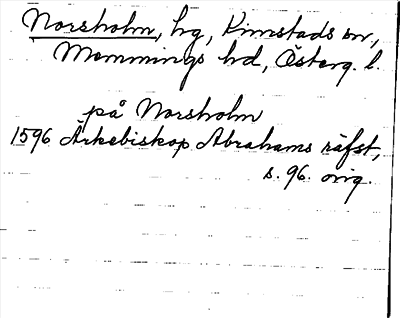 Norsholm, hg, Kimstads sn,
Memmings hd, Österg. l.
på Norsholm
1596 Ärkebiskop Abrahams räfst,
s. 96. orig.